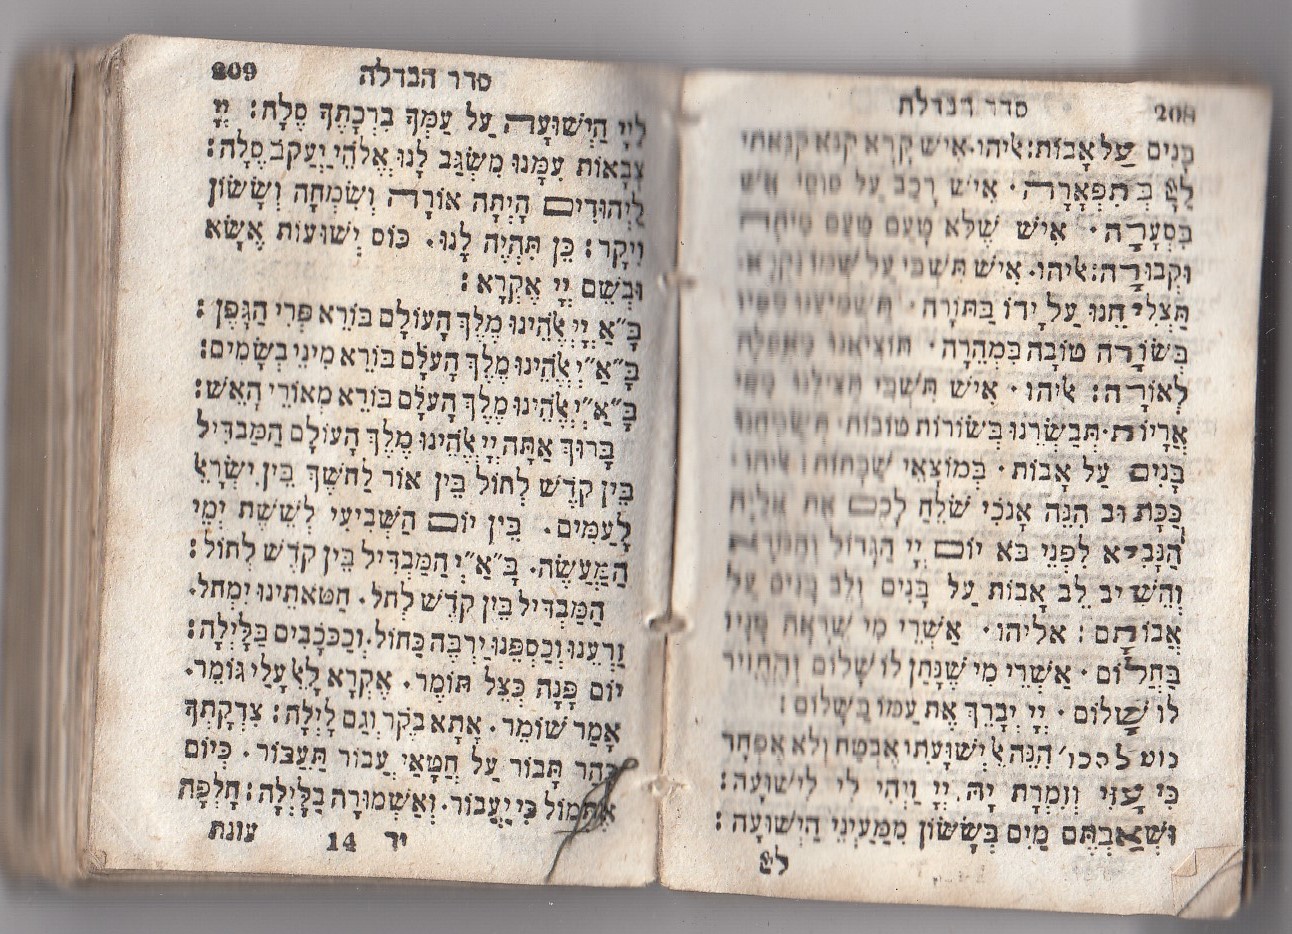 208 סדר הבדלה
בָּנִים עַל אָבוֹת: אליהו. אִישׁ קָרָא קנא קנאתי
בְּ תִפְאָרָה. אִישׁ רֶכֶב עַל סוּסֵי אֵשׁ
בִּסְעָרָה. אִישׁ שֶׁלֹּא טָעַם טַעַם מִיתָה
וּקְבוּרָה: אליהו. אִישׁ תִּשְׁבִּי עַל שמו נקרא.
תַּצְלִיחֵנוּ עַל יָדוֹ בַּתּוֹרָה. תשמיענו מפיו
בְּשׂוֹרָה טוֹבָה בִּמְהֵרָה. תוֹצִיאֵנוּ מֵאֲפֵלָה
לְאוֹרָה: אליהו. אִישׁ תִּשְׁבִּי תַּצִּילֵנוּ מִפִּי
אֲרָיוֹת. תְּבַשְּׂרֵנוּ בְּשׂוֹרוֹת טוֹבוֹת. תשמחנו
בָּנִים עַל אָבוֹת. בְּמוֹצָאֵי שַׁבָּתוֹת: אליהו.
כַּכָּתוּב הִנֵּה אָנֹכִי שֹׁלֵחַ לָכֶם אֶת אֵלִיָּה
הַנָּבִיא לִפְנֵי בֹּא יוֹם יְיָ הַגָּדוֹל וְהַנּוֹרָא
וְהֵשִׁיב לֵב אָבוֹת עַל בָּנִים וְלֵב בָּנִים עַל
אֲבוֹתָם: אליהו. אַשְׁרֵי מִי שֶׁרָאָה פָּנָיו
בַּחֲלוֹם. אַשְׁרֵי מִי שֶׁנָּתַן לוֹ שָׁלוֹם וְהֶחֱזִיר
לוֹ שָׁלוֹם. יְיָ יְבָרֵךְ אֶת עַמּוֹ בַשָּׁלוֹם:
הִנֵּה אֵל יְשׁוּעָתִי אֶבְטַח וְלֹא אֶפְחָד
כִּי עָזִּי וְזִמְרָת יָהּ יְיָ וַיְהִי לִי לִישׁוּעָה:
וּשְׁאַבְתֶּם מַיִם בְּשָׂשׂוֹן מִמַּעַיְנֵי הַיְשׁוּעָה:
209 סדר הבדלה
לַיְיָ הַיְשׁוּעָה עַל עַמְּךָ בִרְכָתֶךָ סֶלָה: יְיָ
צְבָאוֹת עִמָּנוּ מִשְׂגַּב לָנוּ אֱלֹהֵי יַעֲקֹב סֶלָה:
לַיְהוּדִים הָיְתָה אוֹרָה וְשִׂמְחָה וְשָׂשׂוֹן
וִיקָר: כֵּן תִּהְיֶה לָנוּ. כּוֹס יְשׁוּעוֹת אֶשָּׂא
וּבְשֵׁם יְיָ אֶקְרָא:
בָּ״אַ יְיָ אֱלֹהֵינוּ מֶלֶךְ הָעוֹלָם בּוֹרֵא פְּרִי הַגָּפֶן:
בָּ״אַ״יְ אֱלֹהֵינוּ מֶלֶךְ הָעֹלָם בּוֹרֵא מִינֵי בְשָׂמִים:
בָּ״אַ״יְ אֱלֹהֵינוּ מֶלֶךְ הָעֹלָם בּוֹרֵא מְאוֹרֵי הָאֵשׁ:
בָּרוּךְ אַתָּה יְיָ אֱלֹהֵינוּ מֶלֶךְ הָעוֹלָם הַמַּבְדִּיל
בֵּין קֹדֶשׁ לְחוֹל בֵּין אוֹר לַחֹשֶׁךְ בֵּין יִשְׂרָאֵל
לָעַמִּים. בֵּין יוֹם הַשְּׁבִיעִי לְשֵׁשֶׁת יְמֵי
הַמַּעֲשֶׂה. בָּ״אַ״יְ הַמַּבְדִּיל בֵּין קֹדֶשׁ לְחוֹל:
הַמַּבְדִּיל בֵּין קֹדֶשׁ לְחֹל. חַטֹּאתֵינוּ יִמְחֹל.
זַרְעֵנוּ וְכַסְפֵּנוּ יַרְבֶּה כַּחוֹל. וְכַכֹּכָבִים בַּלָּיְלָה:
יוֹם פָּנָה כְּצֵל תּוֹמֶר. אֶקְרָא לָאֵל עָלַי גּוֹמֵר.
אָמַר שׁוֹמֵר. אָתָא בֹקֶר וְגַם לָיְלָה: צִדְקָתְךָ
כְּהַר תָּבוֹר עַל חֲטָאַי עֲבוֹר תַּעֲבוֹר. כְּיוֹם
אֶתְמוֹל כִּי יַעֲבוֹר. וְאַשְׁמוּרָה בַלָּיְלָה: חָלְפָה
יד 14 עונת